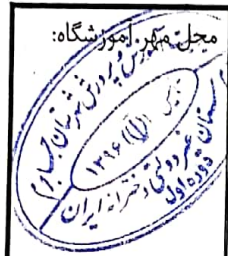 محل مهر آموزشگاه:
آموزش و پرورش شهرستان
تاسیس
۱۳۹۶
دبستان غیر دولتی دخترانه ایران
دوره اول